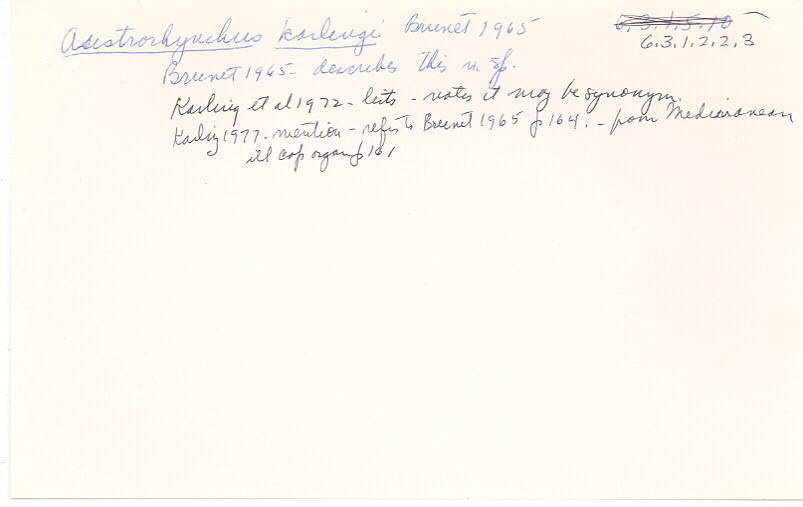 Acestrorhynchus karlingi Brunet 1965
6.3.1.5.10
6.3.1.2.2.3
Brunet 1965 - describes this n. sp.
Karling et al 1972 - lists - notes it may be synonym.
Karling 1977 - mention - refers to Brunet 1965 p 164. - from Mediterranean
ill cop organ p 161